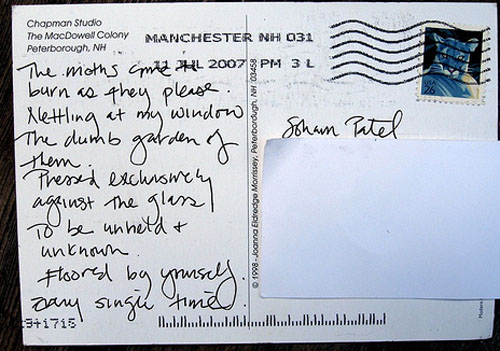 Chapman Studio
The MacDowell Colony
Peterborough, NH
MANCHESTER NH 031
11 JUL 2007 PM 3 L
26
The moths come to
burn as they please.
Nettling at my window
The dumb garden of
them.
Pressed exclusively
against the glass
To be unheld +
unknown.
Floored by yourself.
every single time.
© 1998 - Joanna Eldredge Morrissey, Peterborough, NH 03458
Soham Patel